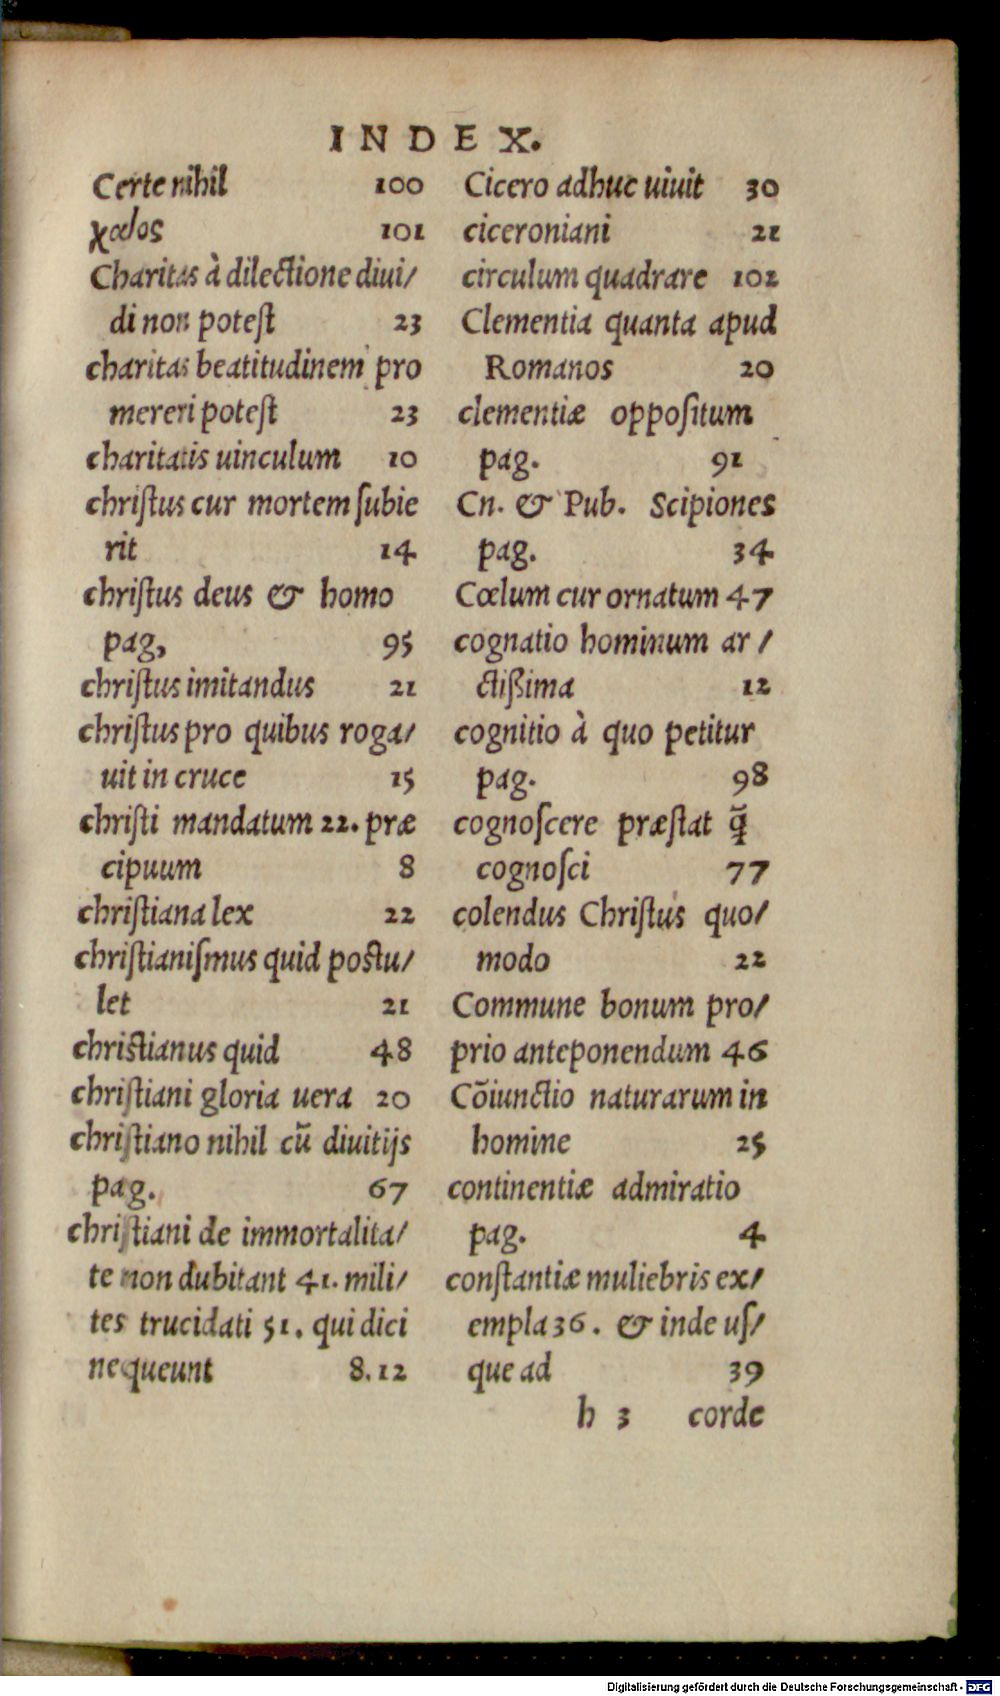 INDEX.
Certe nihil 100
χαλος 101
Charitas à dilectione divi/
di non potest 23
charitas beatitudinem pro
mereri potest 23
charitatis uinculum 10
christus cur mortem ſubie
rit 14
chriſtus deus & homo
pag, 95
chriſtus imitandus 21
chriſtus pro quibus roga/
uit in cruce 15
chriſti mandatum 22. præ
cipuum 8
chriſtiana lex 22
chriſtianiſmus quid postu/
let 21
christianus quid 48
chriſtiani gloria uera 20
chriſtiano nihil cũ diuitijs
pag. 67
chriſtiani de immortalita/
te non dubitant 41. mili/
tes trucidati 51. qui dici
nequeunt 8.12
Cicero adhuc uiuit 30
ciceroniani 21
circulum quadrare 102
Clementia quanta apud
Romanos 20
clementiæ oppoſitum
pag. 91
Cn. & Pub. Scipiones
pag. 34
Cœlum cur ornatum 47
cognatio hominum ar/
ctißima 12
cognitio à quo petitur
pag. 98
cognoſcere præſtat q̃
cognoſci 77
colendus Chriſtus quo/
modo 22
Commune bonum pro/
prio anteponendum 46
Cõiunctio naturarum in
homine 25
continentiæ admiratio
pag. 4
conſtantiæ muliebris ex/
empla 36. & inde uſ/
que ad 39
h 3 corde
Digitalisierung gefördert durch die Deutsche Forschungsgemeinschaft - DFG